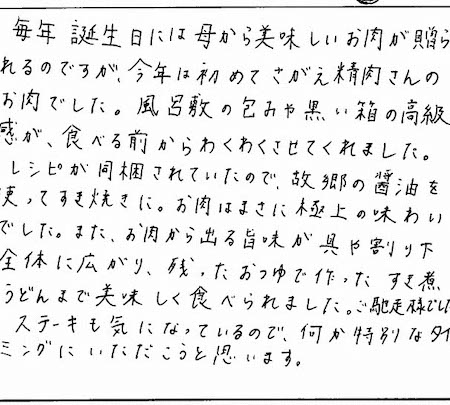 毎年誕生日には母から美味しいお肉が贈ら
れるのですが、今年は初めてさがえ精肉さんの
お肉でした。風呂敷の包みや黒い箱の高級
感が、食べる前からわくわくさせてくれました。
レシピが同梱されていたので、故郷の醤油を
使ってすき焼きに。お肉はまさに極上の味わい
でした。また、お肉から出る旨味が具や割り下
全体に広がり、残ったおつゆで作ったすき煮
うどんまで美味しく食べられました。ご馳走様でした
ステーキも気になっているので、何か特別なタイ
ミングにいただこうと思います。